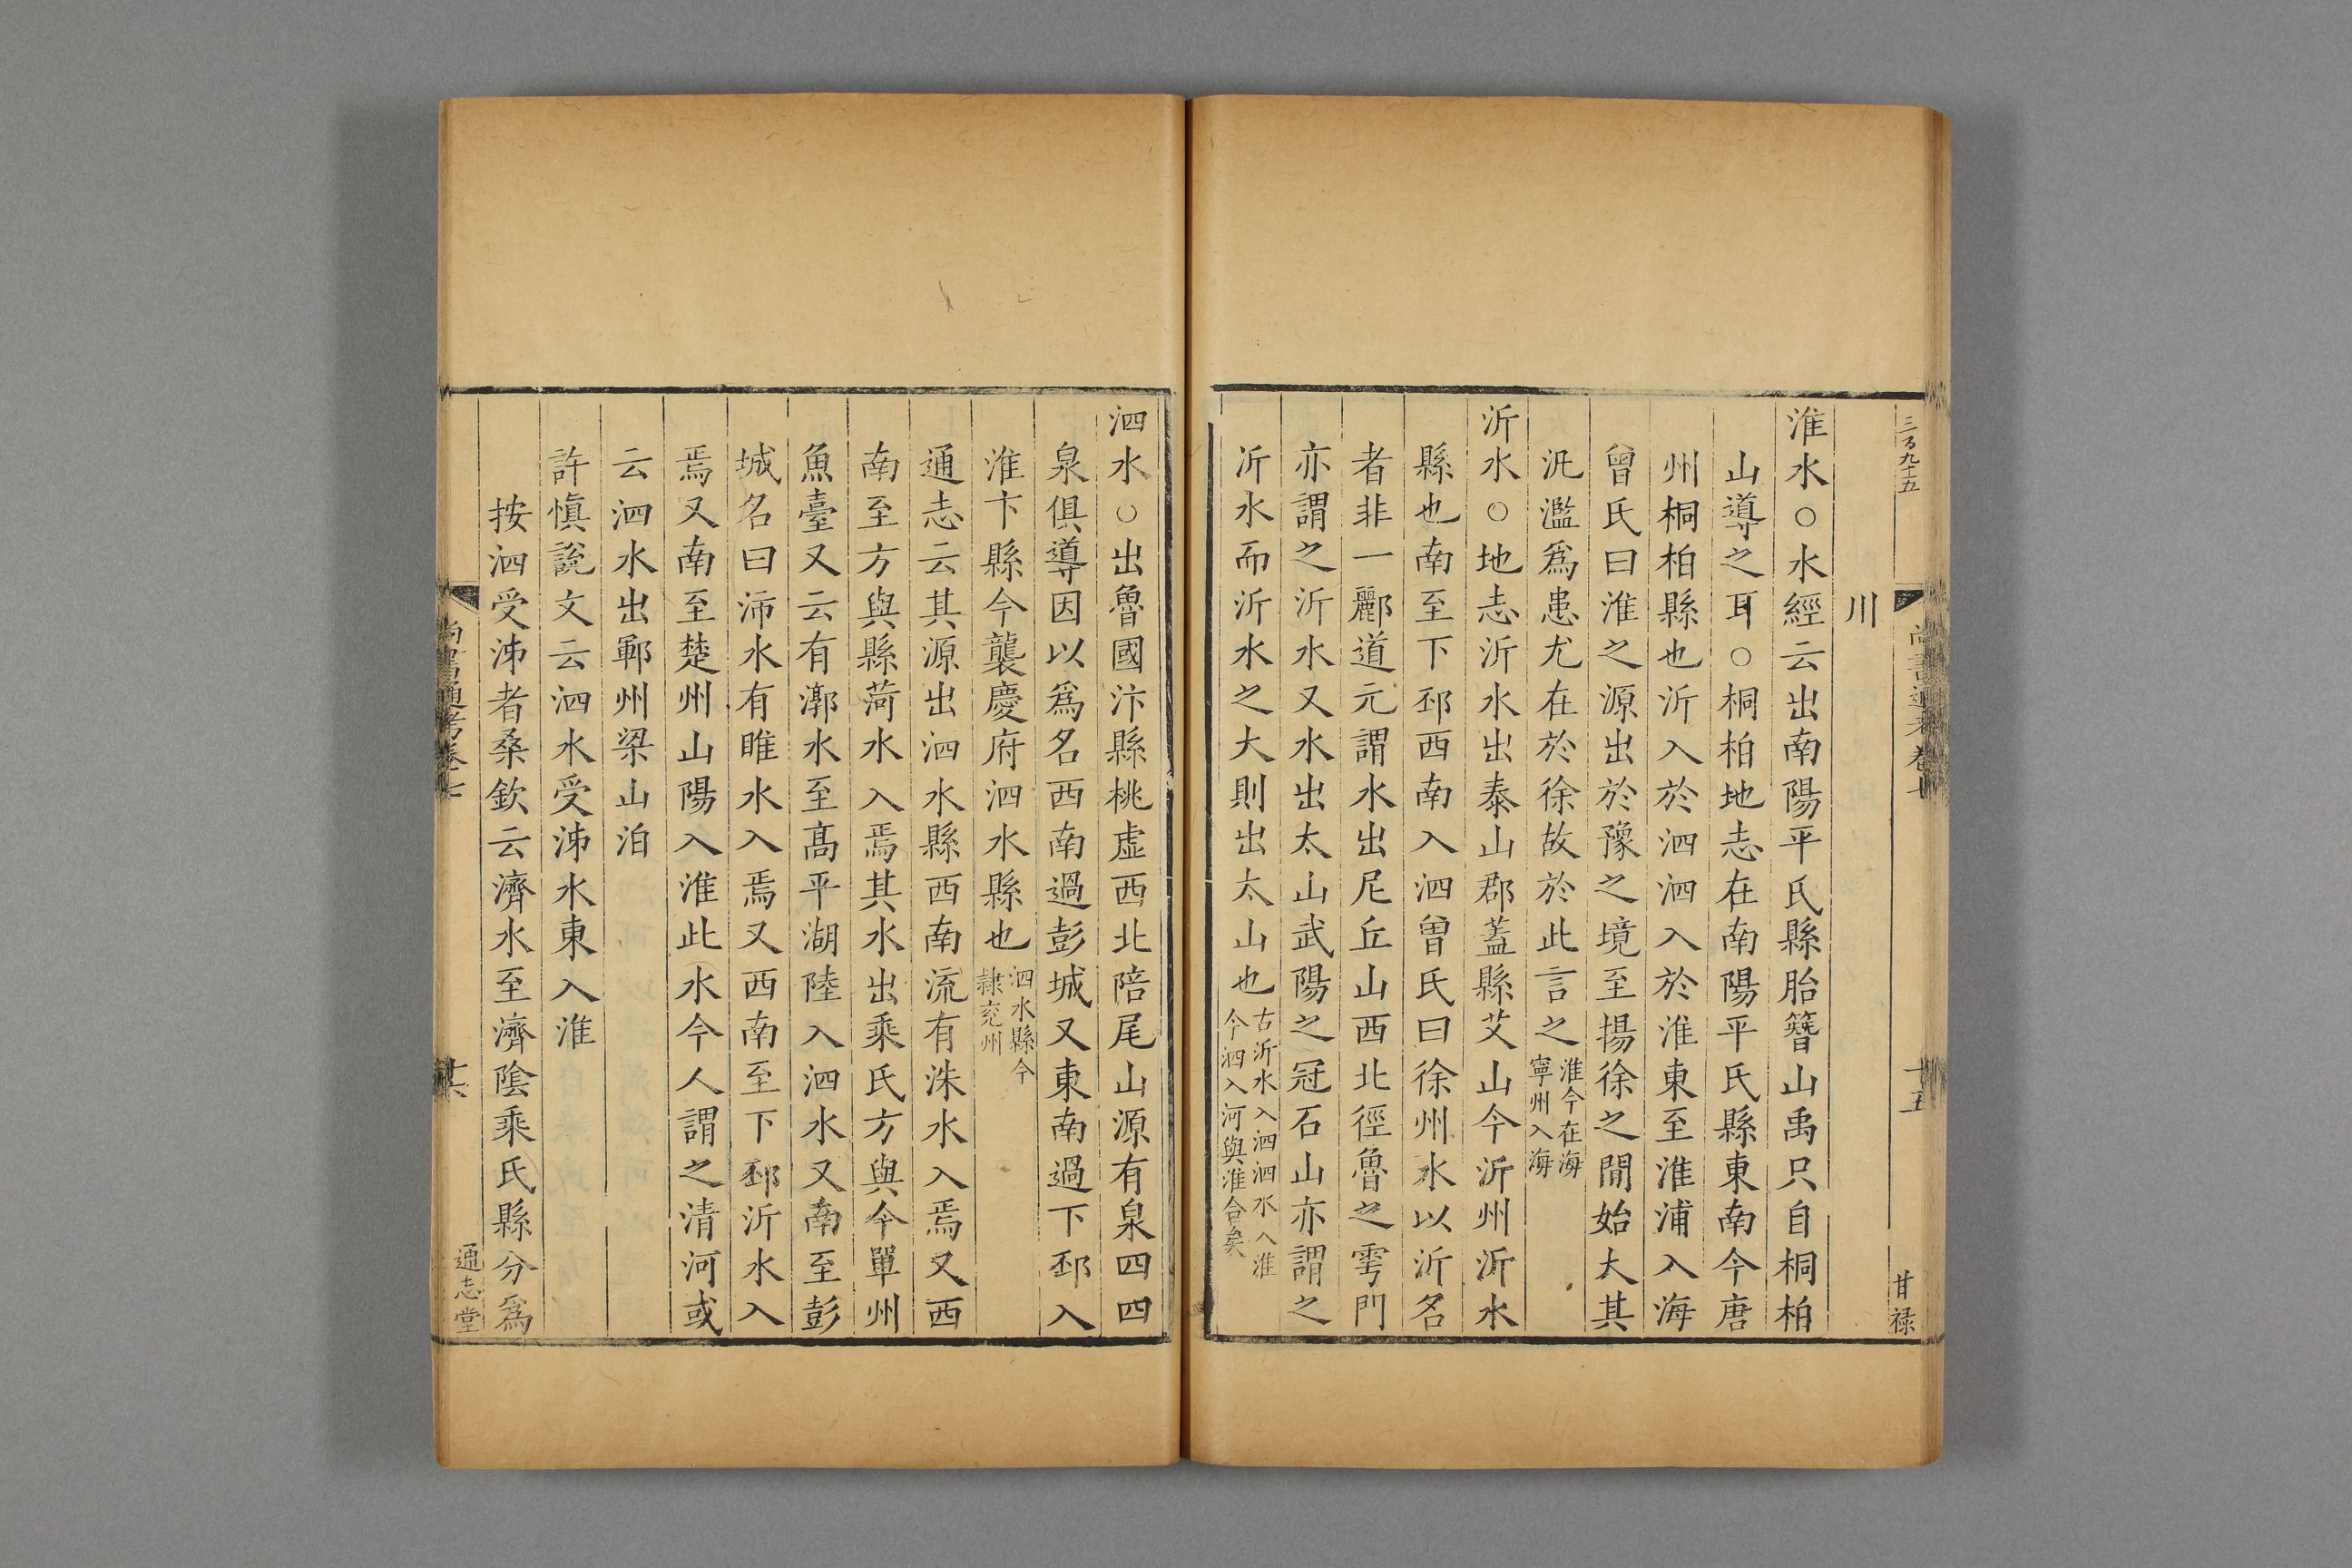 三百九十五
尚書通考卷七
十五
甘祿
川
淮水○水經云出南陽平氏縣胎簪山禹只自桐柏
山導之耳○桐柏地志在南陽平氏縣東南今唐
州桐柏縣也沂入於泗泗入於淮東至淮浦入海
曾氏曰淮之源出於豫之境至揚徐之間始大其
汎濫爲患尤在於徐故於此言之淮今在海
寧州入海
沂水○地志沂水出泰山郡蓋縣艾山今沂州沂水
縣也南至下邳西南入泗曾氏曰徐州水以沂名
者非一酈道元謂水出尼丘山西北徑魯之雩門
亦謂之沂水又水出太山武陽之冠石山亦謂之
沂水而沂水之大則出太山也古沂水入泗泗水入淮
今泗入河與淮合矣
泗水○出魯國汴縣桃虛西北陪尾山源有泉四四
泉俱導因以爲名西南過彭城又東南過下邳入
淮卞縣今襲慶府泗水縣也泗水縣今
隸兖州
通志云其源出泗水縣西南流有洙水入焉又西
南至方與縣菏水入焉其水出乘氏方與今單州
魚臺又云有漷水至高平湖陸入泗水又南至彭
城名曰沛水有睢水入焉又西南至下邳沂水入
焉又南至楚州山陽入淮此水今人謂之清河或
云泗水出鄆州梁山泊
許愼說文云泗水受泲水東入淮
按泗受泲者桑欽云濟水至濟隂乘氏縣分爲
尚書通考卷七
十六
通志堂